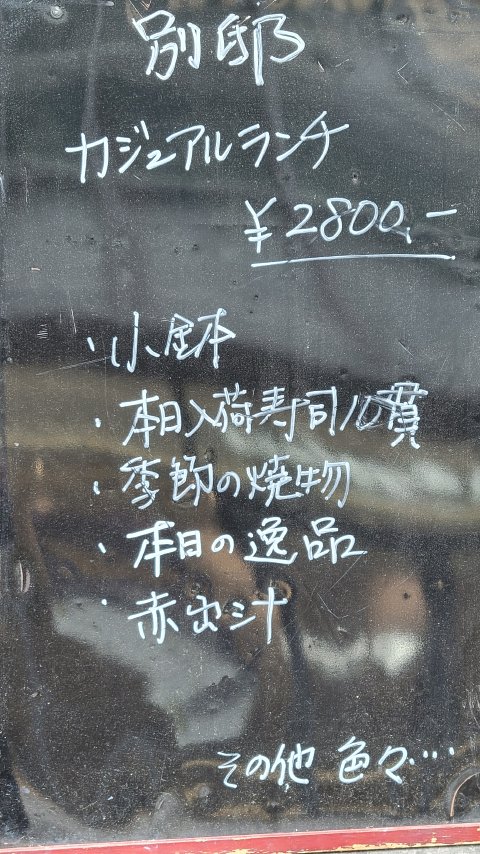 別邸
カジュアルランチ
¥2800.-
・小鉢
・本日入荷寿司10貫
・季節の焼物
・本日の逸品
・赤出汁
その他 色々・・・